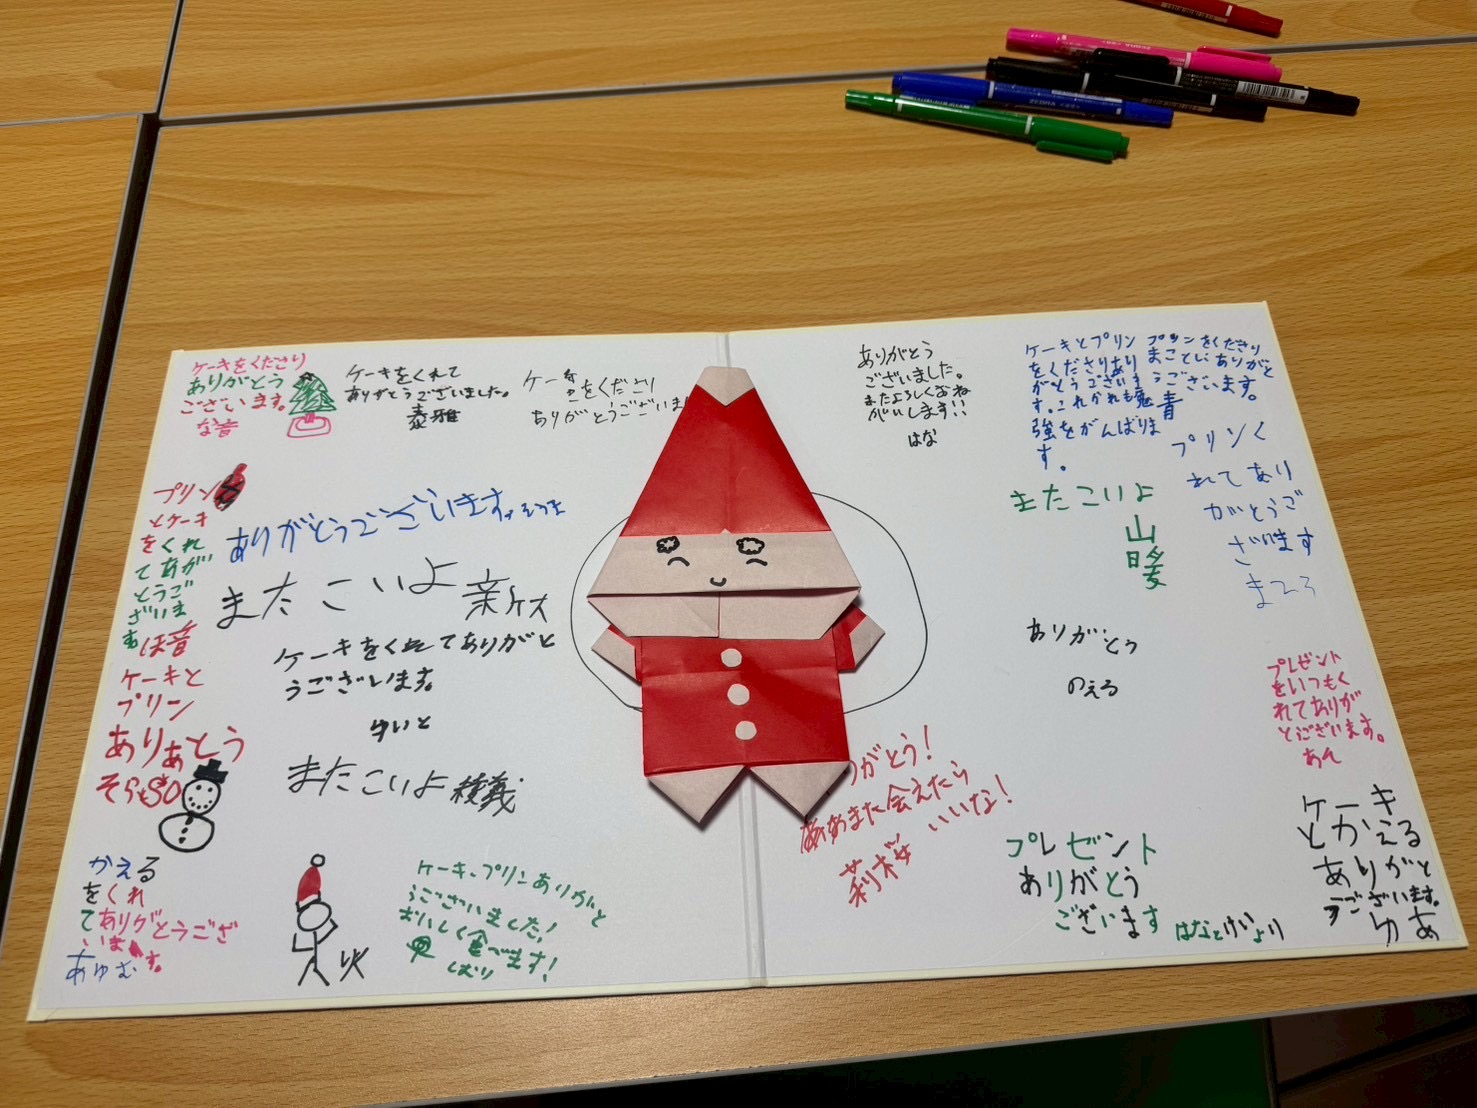 ケーキをくださり
ありがとう
ございます。
な音
ケーキをくれて
ありがとうございました。
泰雅
ケーキ
をくださり
ありがとうございま
プリン
とケーキ
をくれ
てあが
とうご
ざいま
す
ほ音
ありがとうございます。
またこいよ
ケーキをくれてありがと
うございます。
ゆいと
またこいよ
ケーキと
プリン
ありがとう
そら
かえる
をくれ
てありがとうござ
います。
あゆむ
ケーキ、プリンありがと
うございました!
おいしく食べます!
ありがとう
ございました。
またよろしくおね
がいします!!
はな
ケーキとプリン
をくださりあり
がとうございま
す。これからも勉
強をがんばりま
す。
プリンをくださり
まことにありがと
うございます。
青
プリンく
れてあり
がとうご
ざいます
またこいよ
山
暖
ありがとう
のえる
プレゼント
をいつもく
れてありが
とうございます。
あん
がとう!
また会えたら
いいな!
莉桜
プレゼント
ありがとう
ございます
はなとけいより
ケーキ
とかえる
ありがと
うございます。
ゆあ